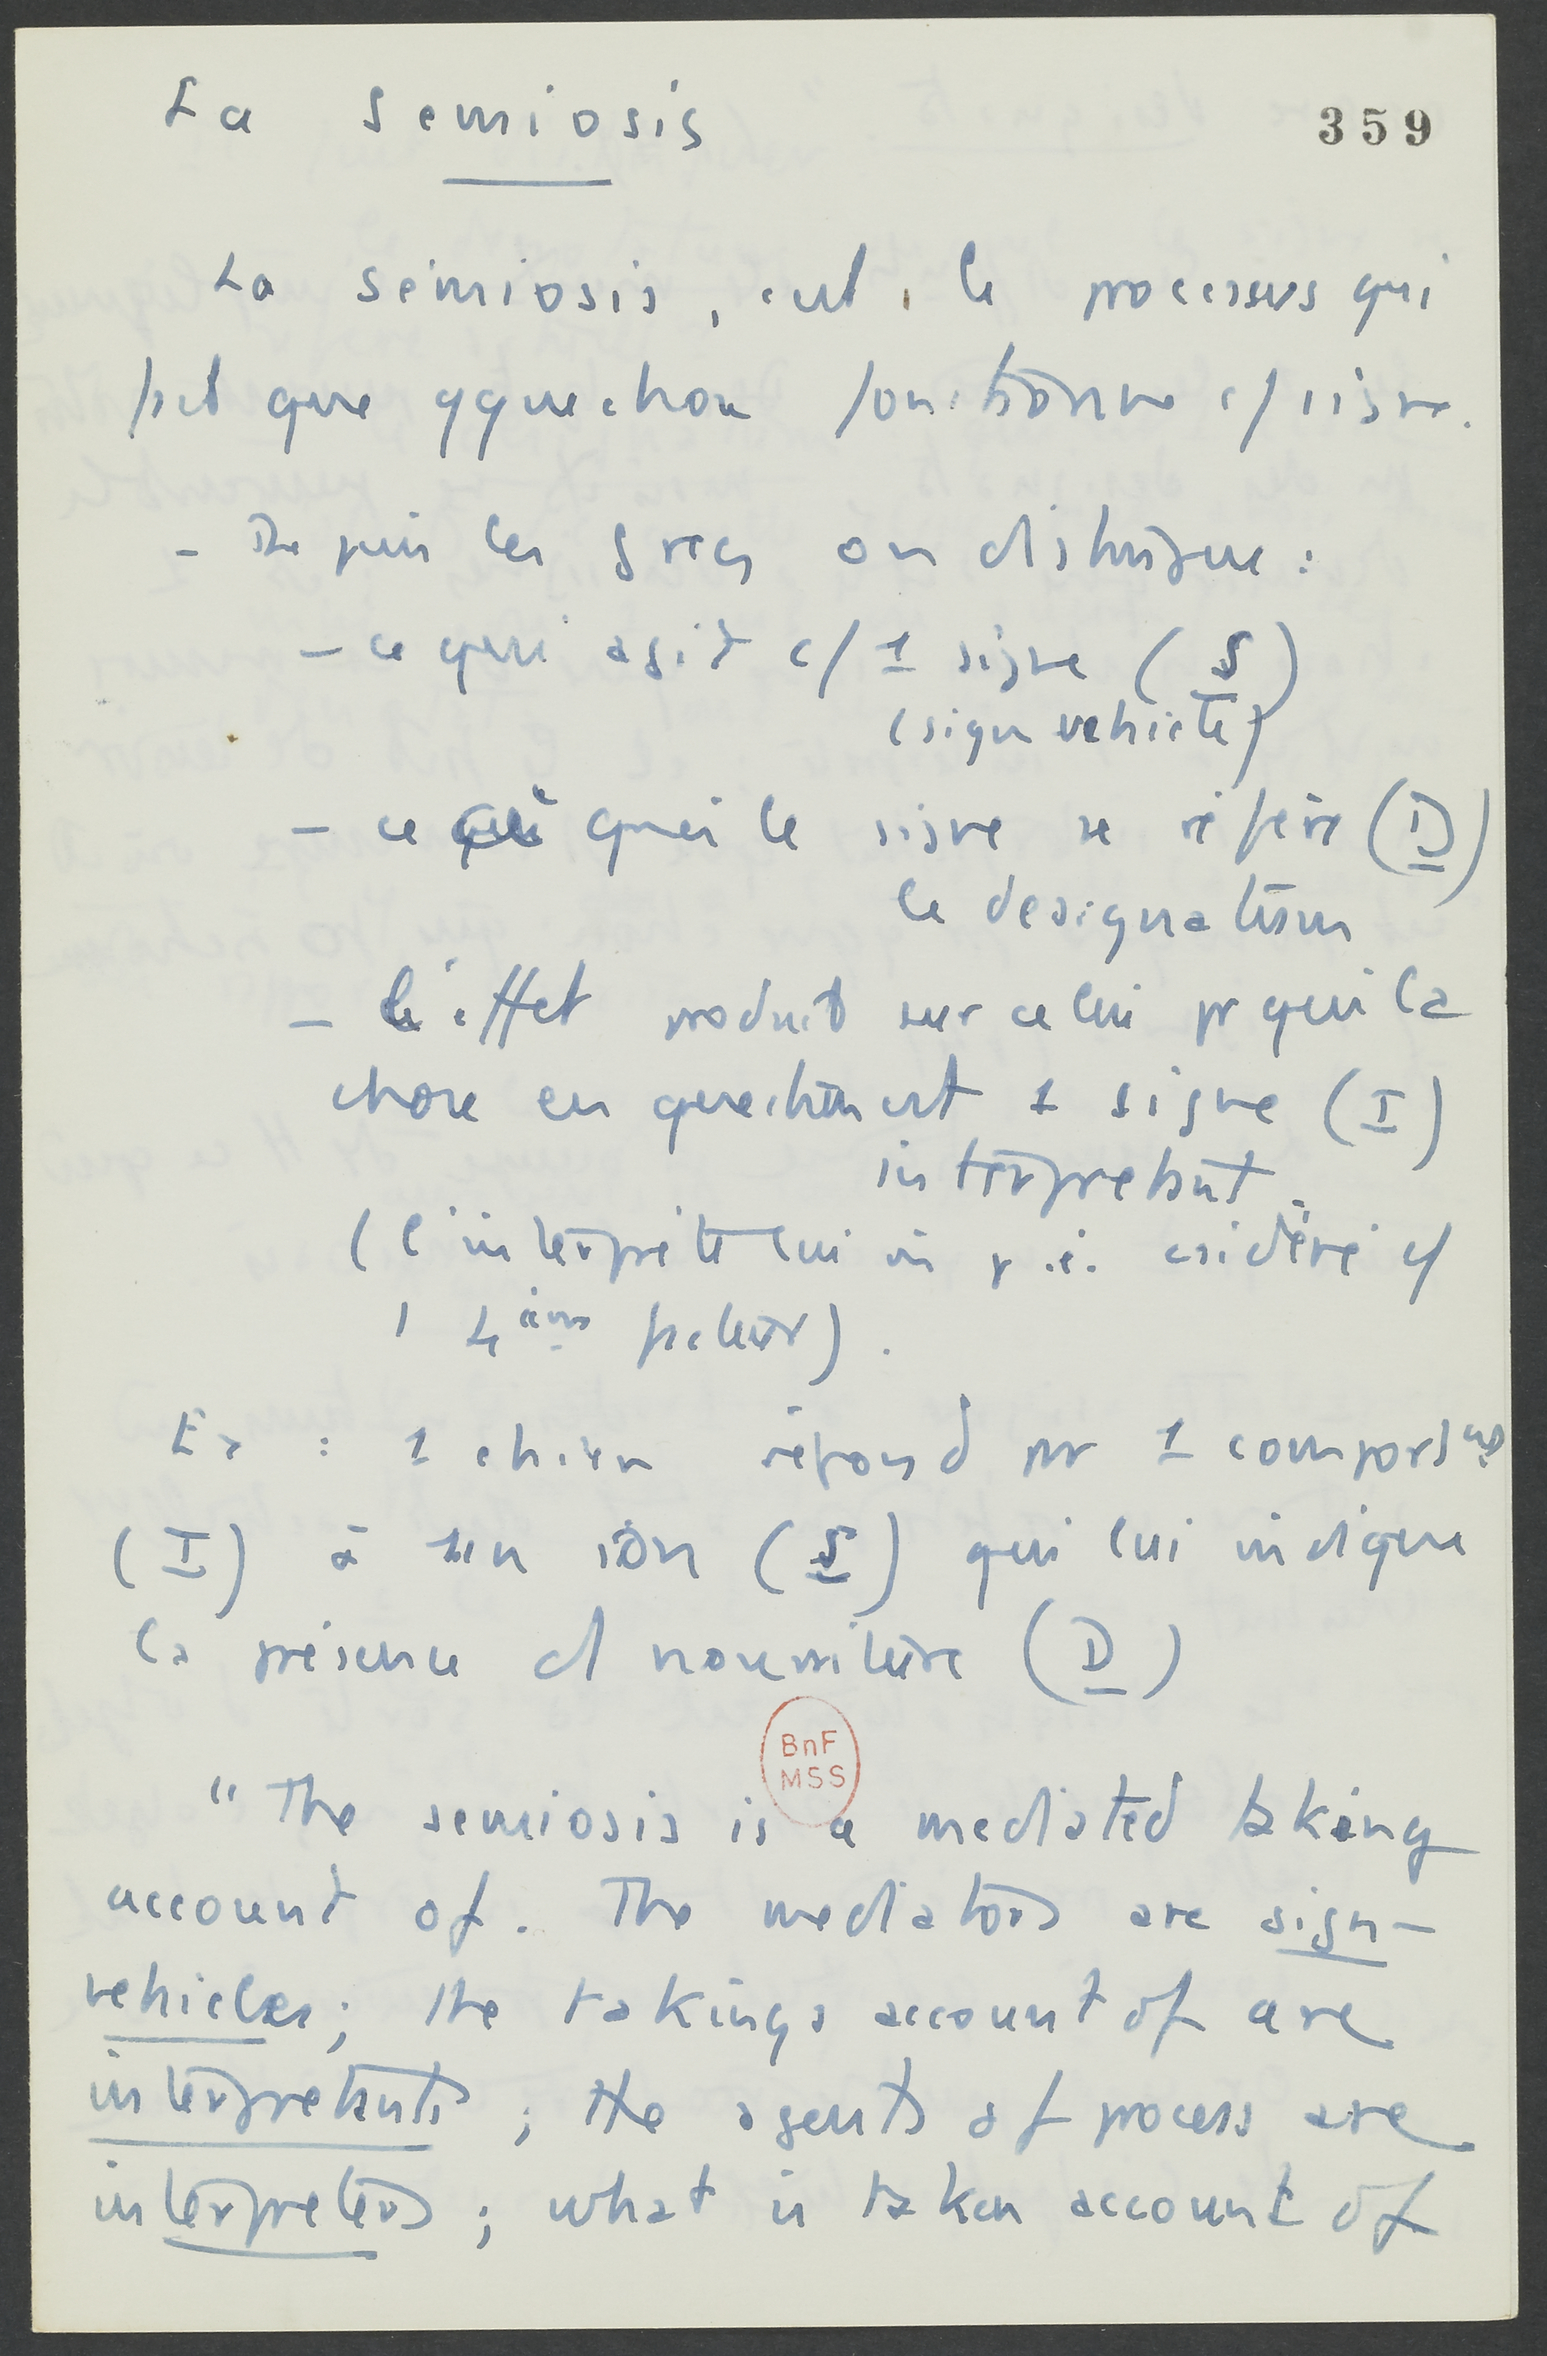 La Semiosis
359
La sémiosis, est, le processus qui
fait que qquechose fonctionne c/ signe.
- Depuis les grecs on distingue :
- ce qui agit c/ 1 signe (S)
(sign vehicle)
- ce à quoi le signe se réfère (D)
le designatum
- l'effet produit sur celui pr qui la
chose en question est 1 signe (I)
interpretant.
(l'interprète lui in p.ê. csidéré c/
1 4ème facteur).
Ex : 1 chien répond par 1 comportmt
(I) à un son (S) qui lui indique
la présence d nourriture (D)
BnF
MSS
"The semiosis is a mediated taking
account of. The mediators are sign-
vehicles; the takings account of are
interpretants; the agents of process are
interpreters; what is taken account of